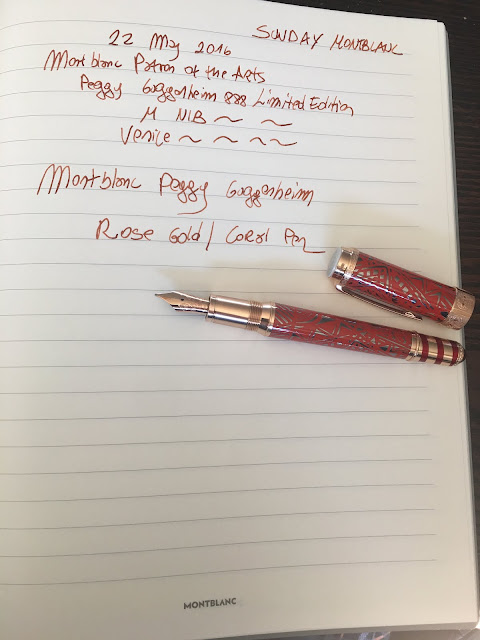 SUNDAY MONTBLANC
22 May 2016
Montblanc Patron of the Arts
Peggy Guggenheim 888 Limited Edition
M NIB ~ ~
Venice ~ ~ ~ ~
Montblanc Peggy Guggenheim
Rose Gold / Coral Pen
MONTBLANC